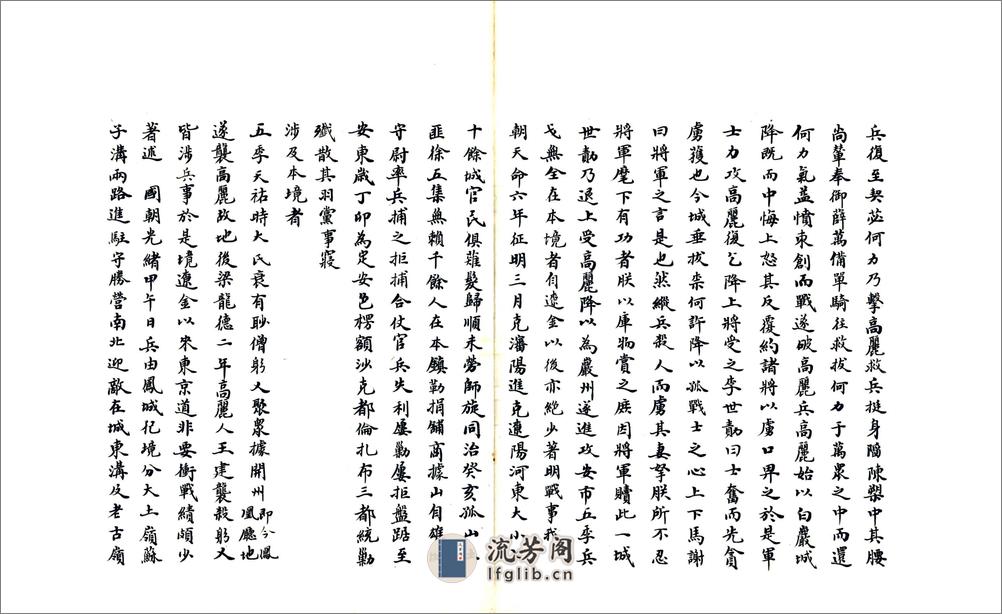 兵復至契苾何力乃擊高麗救兵挺身陷陳槊中其腰
尚輦奉御薛萬備單騎往救拔何力于萬眾之中而還
何力氣益憤束創而戰遂破高麗兵高麗始以白巖城
降既而中悔上怒其反覆約諸將以虜口畀之於是軍
士力攻高麗復乞降上將受之李世勣曰士奮而先貪
虜獲也今城垂拔柰何許降以孤戰士之心上下馬謝
曰將軍之言是也然縱兵殺人而虜其妻孥朕所不忍
將軍麾下有功者朕以庫物賞之庶因將軍贖此一城
世勣乃退上受高麗降以為巖州遂進攻安市五季兵
戈無全在本境者自遼金以後亦絕少著明戰事我
朝天命六年征明三月克瀋陽進克遼陽河東大小
十餘城官民俱薙髮歸順未勞師旅同治癸亥孤山
匪徐五集無賴千餘人在本鎮勒捐鋪商據山自雄
守尉率兵捕之拒捕合仗官兵失利屢勦屢拒盤踞至
安東歲丁卯為定安邑楞額沙克都倫扎布三都統勦
殲散其羽黨事寢
涉及本境者
五季天祐時大氏衰有耿僧躬乂聚眾據開州即今鳳凰廳地
遂襲高麗故地後梁龍德二年高麗人王建襲殺躬乂
皆涉兵事於是境遼金以來東京道非要衝戰績頗少
著述 國朝光緒甲午日兵由鳳城犯境分大上嶺蘇
子溝兩路進駐守勝營南北迎敵在城東溝及老古嶺
流芳阁
lfglib.cn